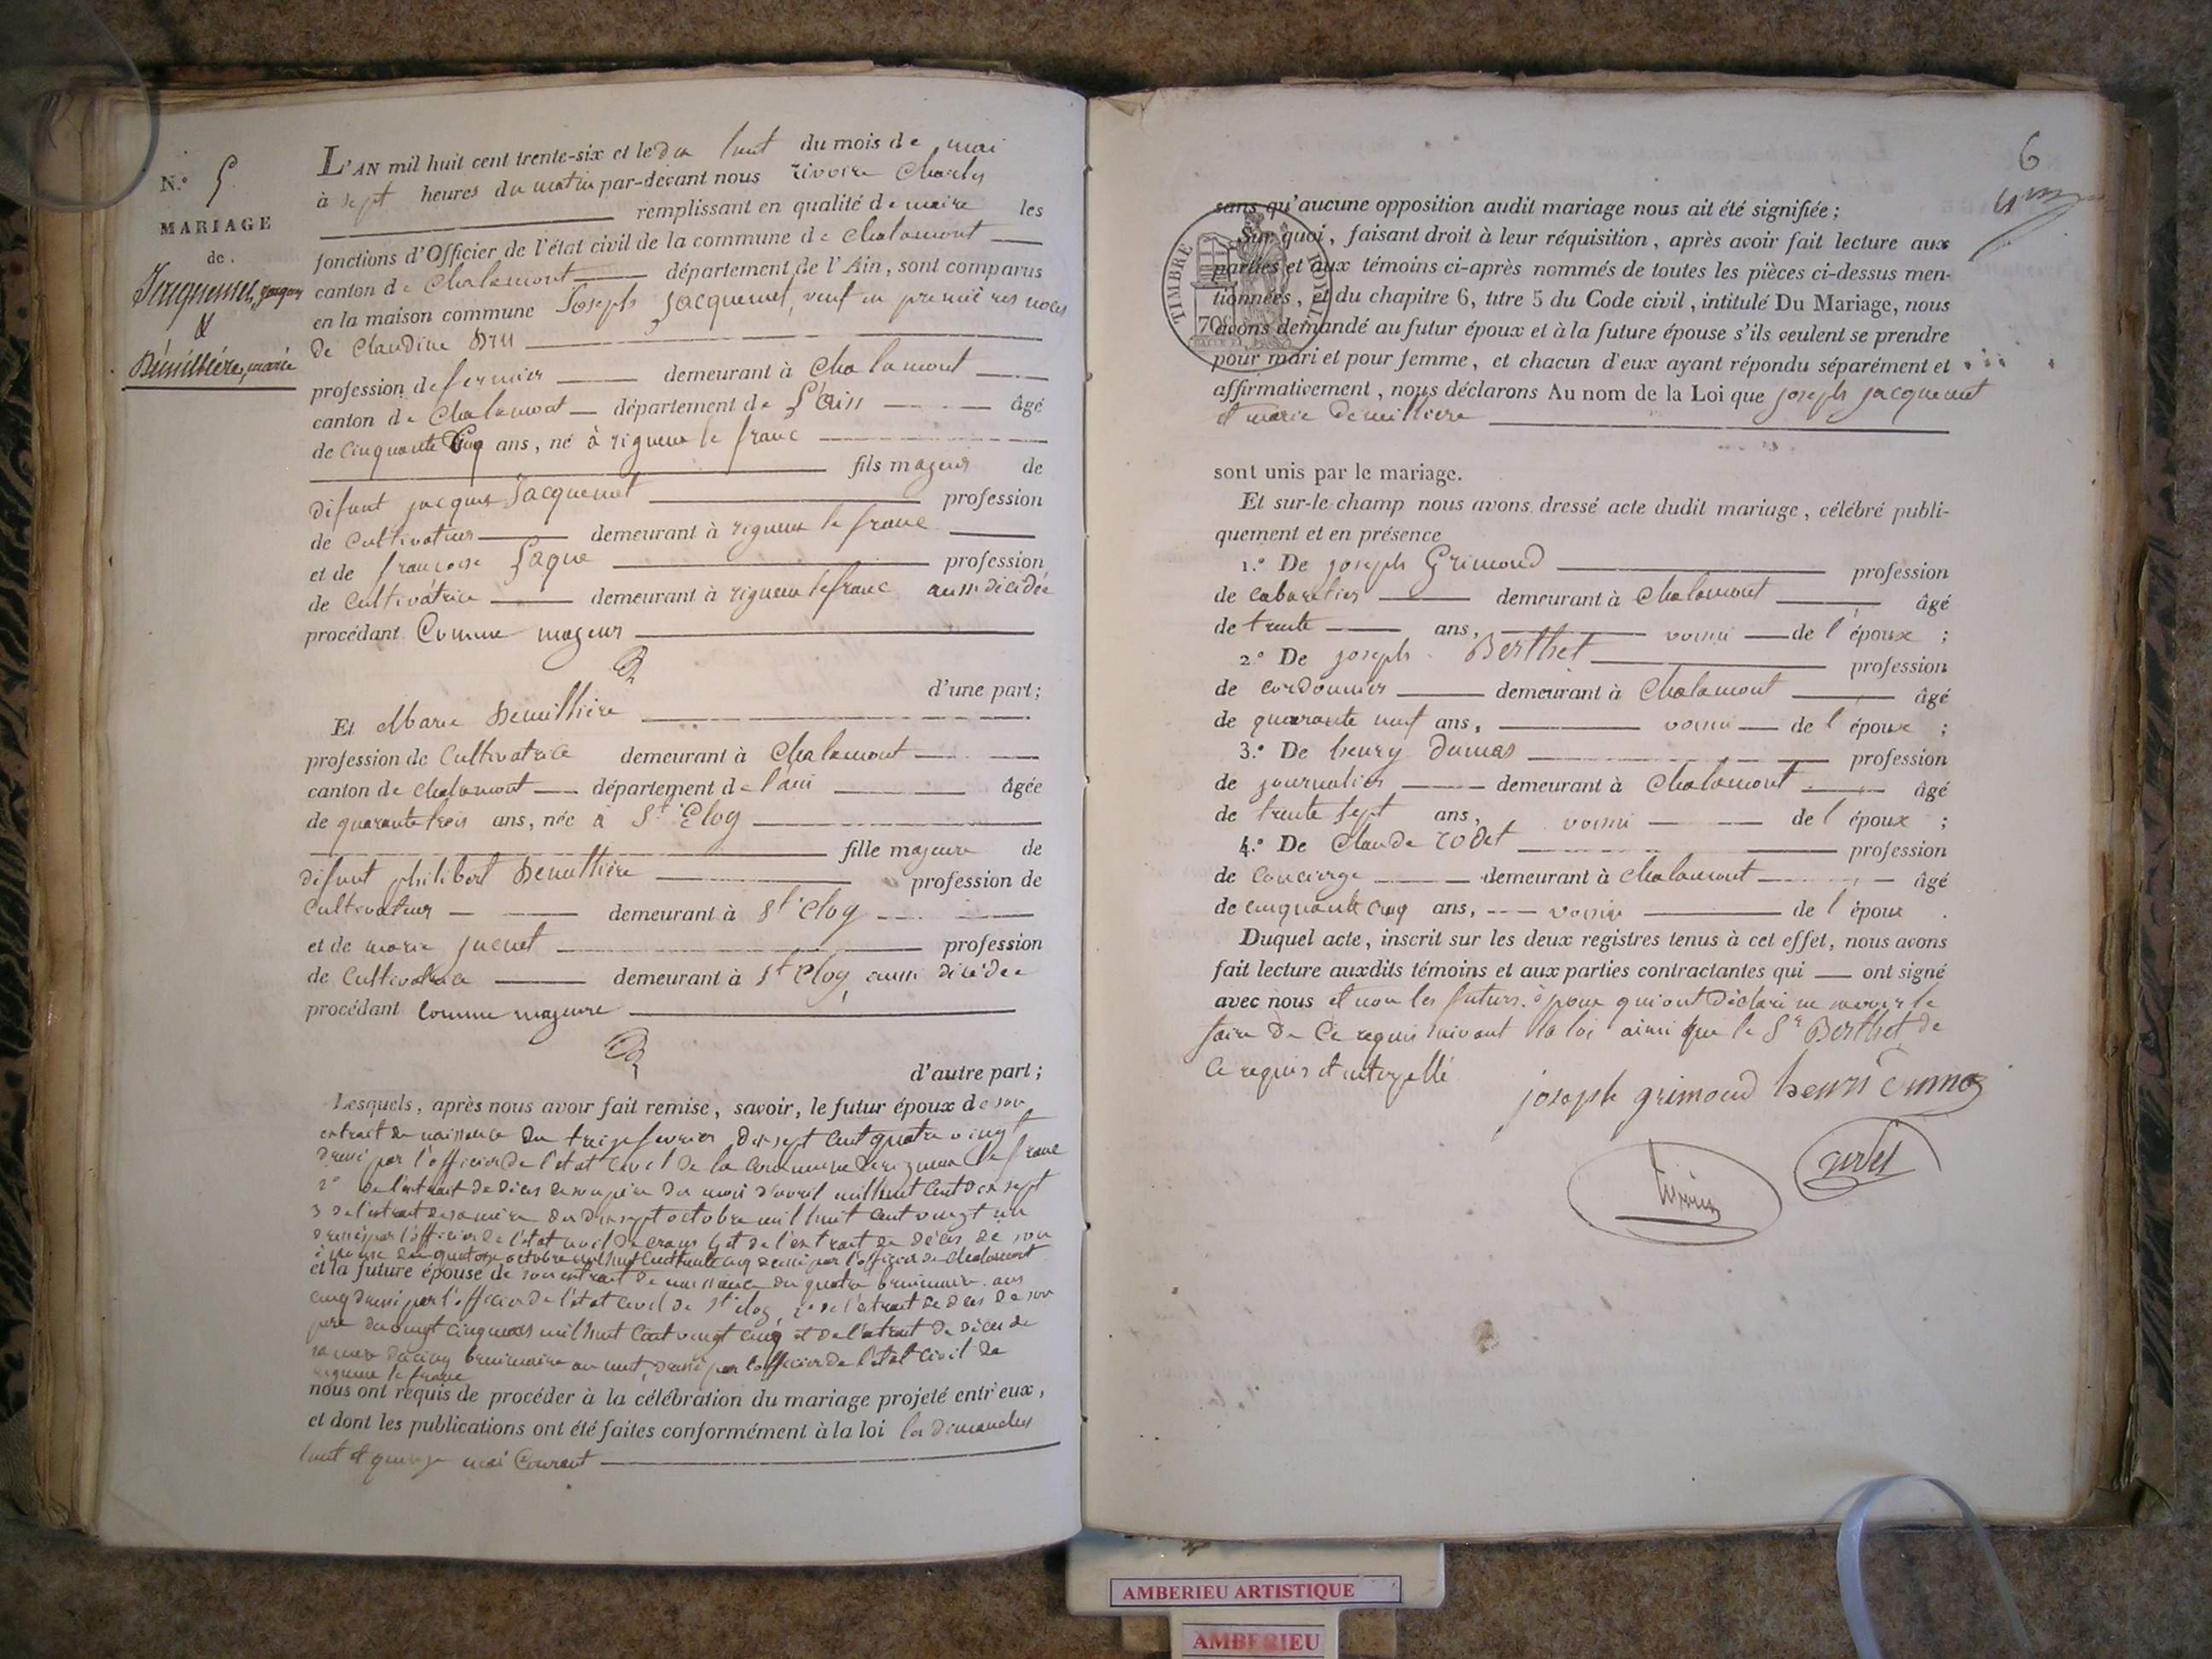 N.° 5
MARIAGE
de
Jacquemet, Joseph
&
Démillière, marie
L'AN mil huit cent trente-six et le dix huit du mois de mai
à sept heures du matin par-devant nous rivoire Charles
remplissant en qualité de maire les
fonctions d'Officier de l'état civil de la commune de chalamont
canton de Chalamont département de l'Ain, sont comparus
en la maison commune Joseph Jacquemet, veuf en premières noces
de Claudine Dru
profession de fermier demeurant à Chalamont
canton de Chalamont département de L'Ain âgé
de cinquante Cinq ans, né à rigneux le franc
fils majeur de
défunt jacques Jacquemet profession
de Cultivateur demeurant à rigneux le franc
et de françoise profession
de Cultivatrice demeurant à rigneux le franc aussi décédée
procédant Comme majeur
d'une part;
Et Marie Demillière
profession de Cultivatrice demeurant à Chalamont
canton de chalamont département de l'ain âgée
de quarante trois ans, née à St Eloy
fille majeure de
défunt philibert Demillière profession de
Cultivateur demeurant à St Eloy
et de marie juenet profession
de Cultivatrice demeurant à St Eloy, aussi décédée
procédant Comme majeure
d'autre part;
Lesquels, après nous avoir fait remise, savoir, le futur époux de son
extrait de naissance du treize fevrier dix sept cent quatre vingt
dressé par l'officier de l'etat civil de la commune de rigneux le franc
2° de l'extrait de décès de son père du mois d'avril mil huit cent dix sept
3 de l'extrait de sa mère du dix sept octobre mil huit cent vingt un
dressés par l'officier de l'etat civil de crans et de l'extrait de décès de son
épouse du quatorze octobre mil huit cent trente cinq dressé par l'officier de chalamont
et la future épouse de son extrait de naissance du quatre brumaire ans
cinq dressé par l'officier de l'état civil de St eloy, 2° de l'extrait de décès de son
père du vingt cinq mars mil huit cent vingt cinq et de l'extrait de décès de
sa mère du cinq brumaire an huit, dressé par l'officier de l'état civil de
rigneux le franc
nous ont requis de procéder à la célébration du mariage projeté entr'eux,
et dont les publications ont été faites conformément à la loi les dimanches
huit et quinze mai Courant
6
sans qu'aucune opposition audit mariage nous ait été signifiée;
Sur quoi, faisant droit à leur réquisition, après avoir fait lecture aux
parties et aux témoins ci-après nommés de toutes les pièces ci-dessus men-
tionnées, et du chapitre 6, titre 5 du Code civil, intitulé Du Mariage, nous
avons demandé au futur époux et à la future épouse s'ils veulent se prendre
pour mari et pour femme, et chacun d'eux ayant répondu séparément et
affirmativement, nous déclarons Au nom de la Loi que joseph jacquemet
et marie demilliere
TIMBRE ROYAL
70c
sont unis par le mariage.
Et sur-le-champ nous avons dressé acte dudit mariage, célébré publi-
quement et en présence
1.° De joseph Grimoud profession
de cabaretier demeurant à Chalamont âgé
de trente ans, voisin de l'époux;
2.° De joseph Berthet profession
de cordonnier demeurant à Chalamont âgé
de quarante neuf ans, voisin de l'époux;
3.° De henry dumas profession
de journalier demeurant à Chalamont âgé
de trente sept ans, voisin de l'époux;
4.° De Claude rodet profession
de Concierge demeurant à chalamont âgé
de cinquante cinq ans, voisin de l'époux.
Duquel acte, inscrit sur les deux registres tenus à cet effet, nous avons
fait lecture auxdits témoins et aux parties contractantes qui ont signé
avec nous et non les futurs époux qui ont déclaré ne savoir le
faire de Ce requis suivant la loi ainsi que le Sr Berthet de
Ce requis et interpellé
joseph grimoud henri Dumas
rodet
rivoire
AMBERIEU ARTISTIQUE
AMBERIEU